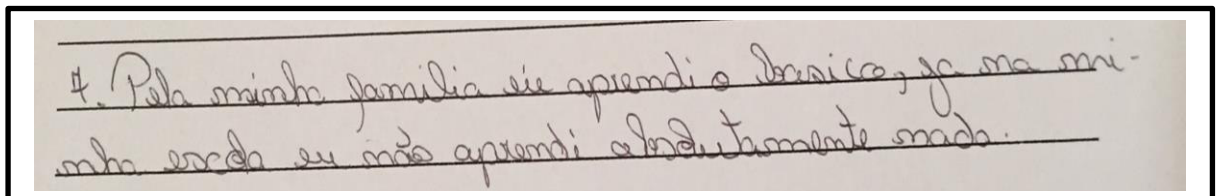 7. Pela minha familia eu aprendi o basico, ja na mi-
nha escola eu não aprendi absolutamente nada.